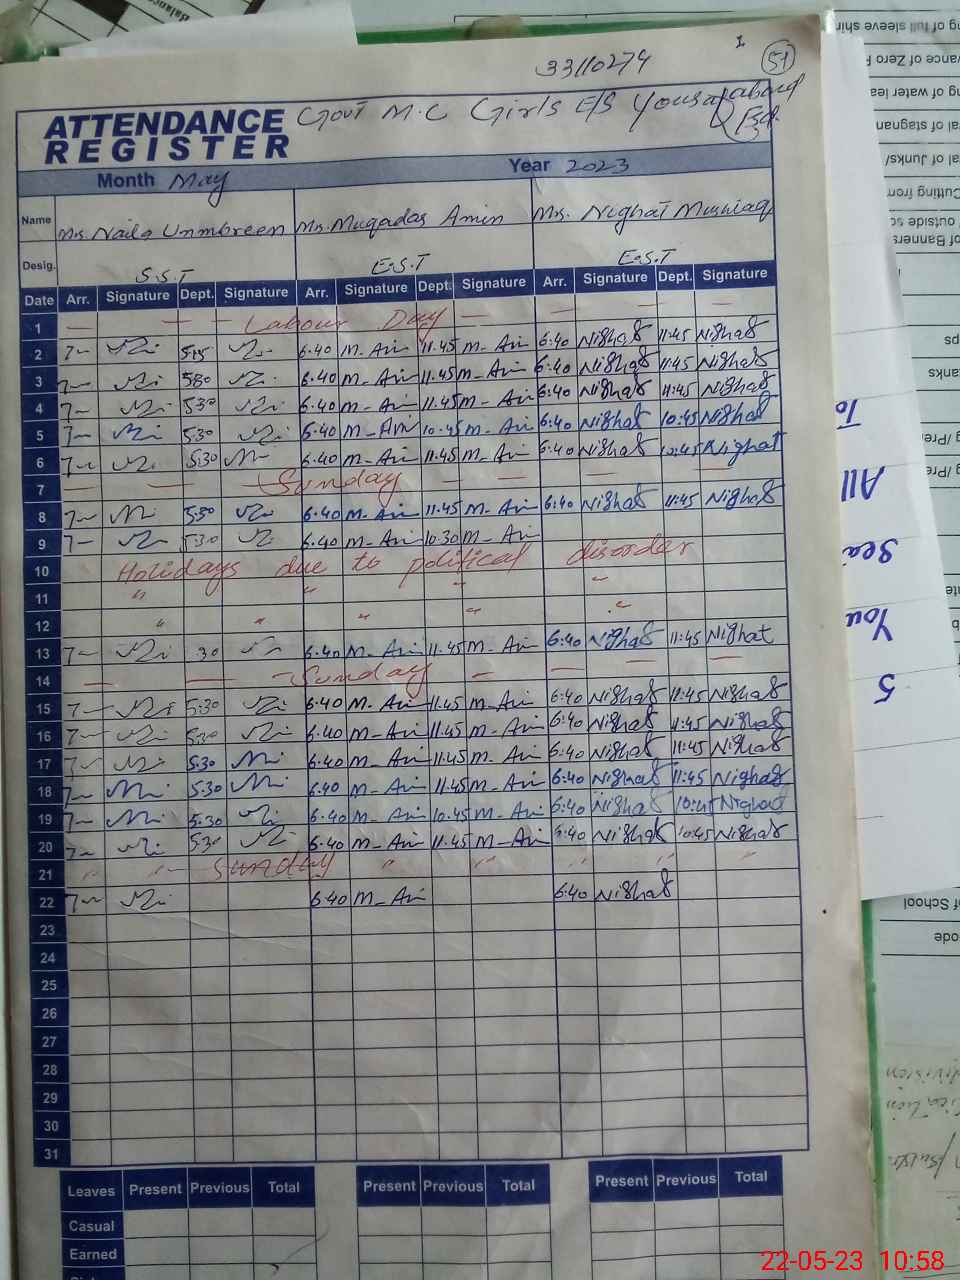 33110274
51
ATTENDANCE REGISTER
Govt M.C Girls E/S Yousafabad Fsd.
Month May Year 2023
Name Mrs. Naila Unmbreen Mrs. Muqadas Amin Mrs. Nighat Mushtaq
Desig. S.S.T E.S.T E.S.T
Date Arr. Signature Dept. Signature Arr. Signature Dept. Signature Arr. Signature Dept. Signature
1 Labour Day
2 7 5:15 6:40 M-Ain 11:45 M-Ain 6:40 Nighat 11:45 Nighat
3 7 5:30 6:40 M-Ain 11:45 M-Ain 6:40 Nighat 11:45 Nighat
4 7 5:30 6:40 M-Ain 11:45 M-Ain 6:40 Nighat 11:45 Nighat
5 7 5:30 6:40 M-Ain 10:45 M-Ain 6:40 Nighat 10:45 Nighat
6 7 5:30 6:40 M-Ain 11:45 M-Ain 6:40 Nighat 10:45 Nighat
7 Sunday
8 7 5:30 6:40 M-Ain 11:45 M-Ain 6:40 Nighat 11:45 Nighat
9 7 5:30 6:40 M-Ain 10:30 M-Ain
10 Holidays due to political disorder
11 " " " "
12 " " " " "
13 7 30 6:40 M-Ain 11:45 M-Ain 6:40 Nighat 11:45 Nighat
14 Sunday
15 7 5:30 6:40 M-Ain 11:45 M-Ain 6:40 Nighat 11:45 Nighat
16 7 5:30 6:40 M-Ain 11:45 M-Ain 6:40 Nighat 11:45 Nighat
17 7 5:30 6:40 M-Ain 11:45 M-Ain 6:40 Nighat 11:45 Nighat
18 7 5:30 6:40 M-Ain 11:45 M-Ain 6:40 Nighat 11:45 Nighat
19 7 5:30 6:40 M-Ain 10:45 M-Ain 6:40 Nighat 10:45 Nighat
20 7 5:30 6:40 M-Ain 11:45 M-Ain 6:40 Nighat 10:45 Nighat
21 " " Sunday " " " " "
22 7 6:40 M-Ain 6:40 Nighat
23
24
25
26
27
28
29
30
31
Leaves Present Previous Total Present Previous Total Present Previous Total
Casual
Earned
of full sleeve
of Zero
of water
of stagnan
al of Junks/
Cutting from
outside
of Banners
To
All
You
5
of School
22-05-23 10:58